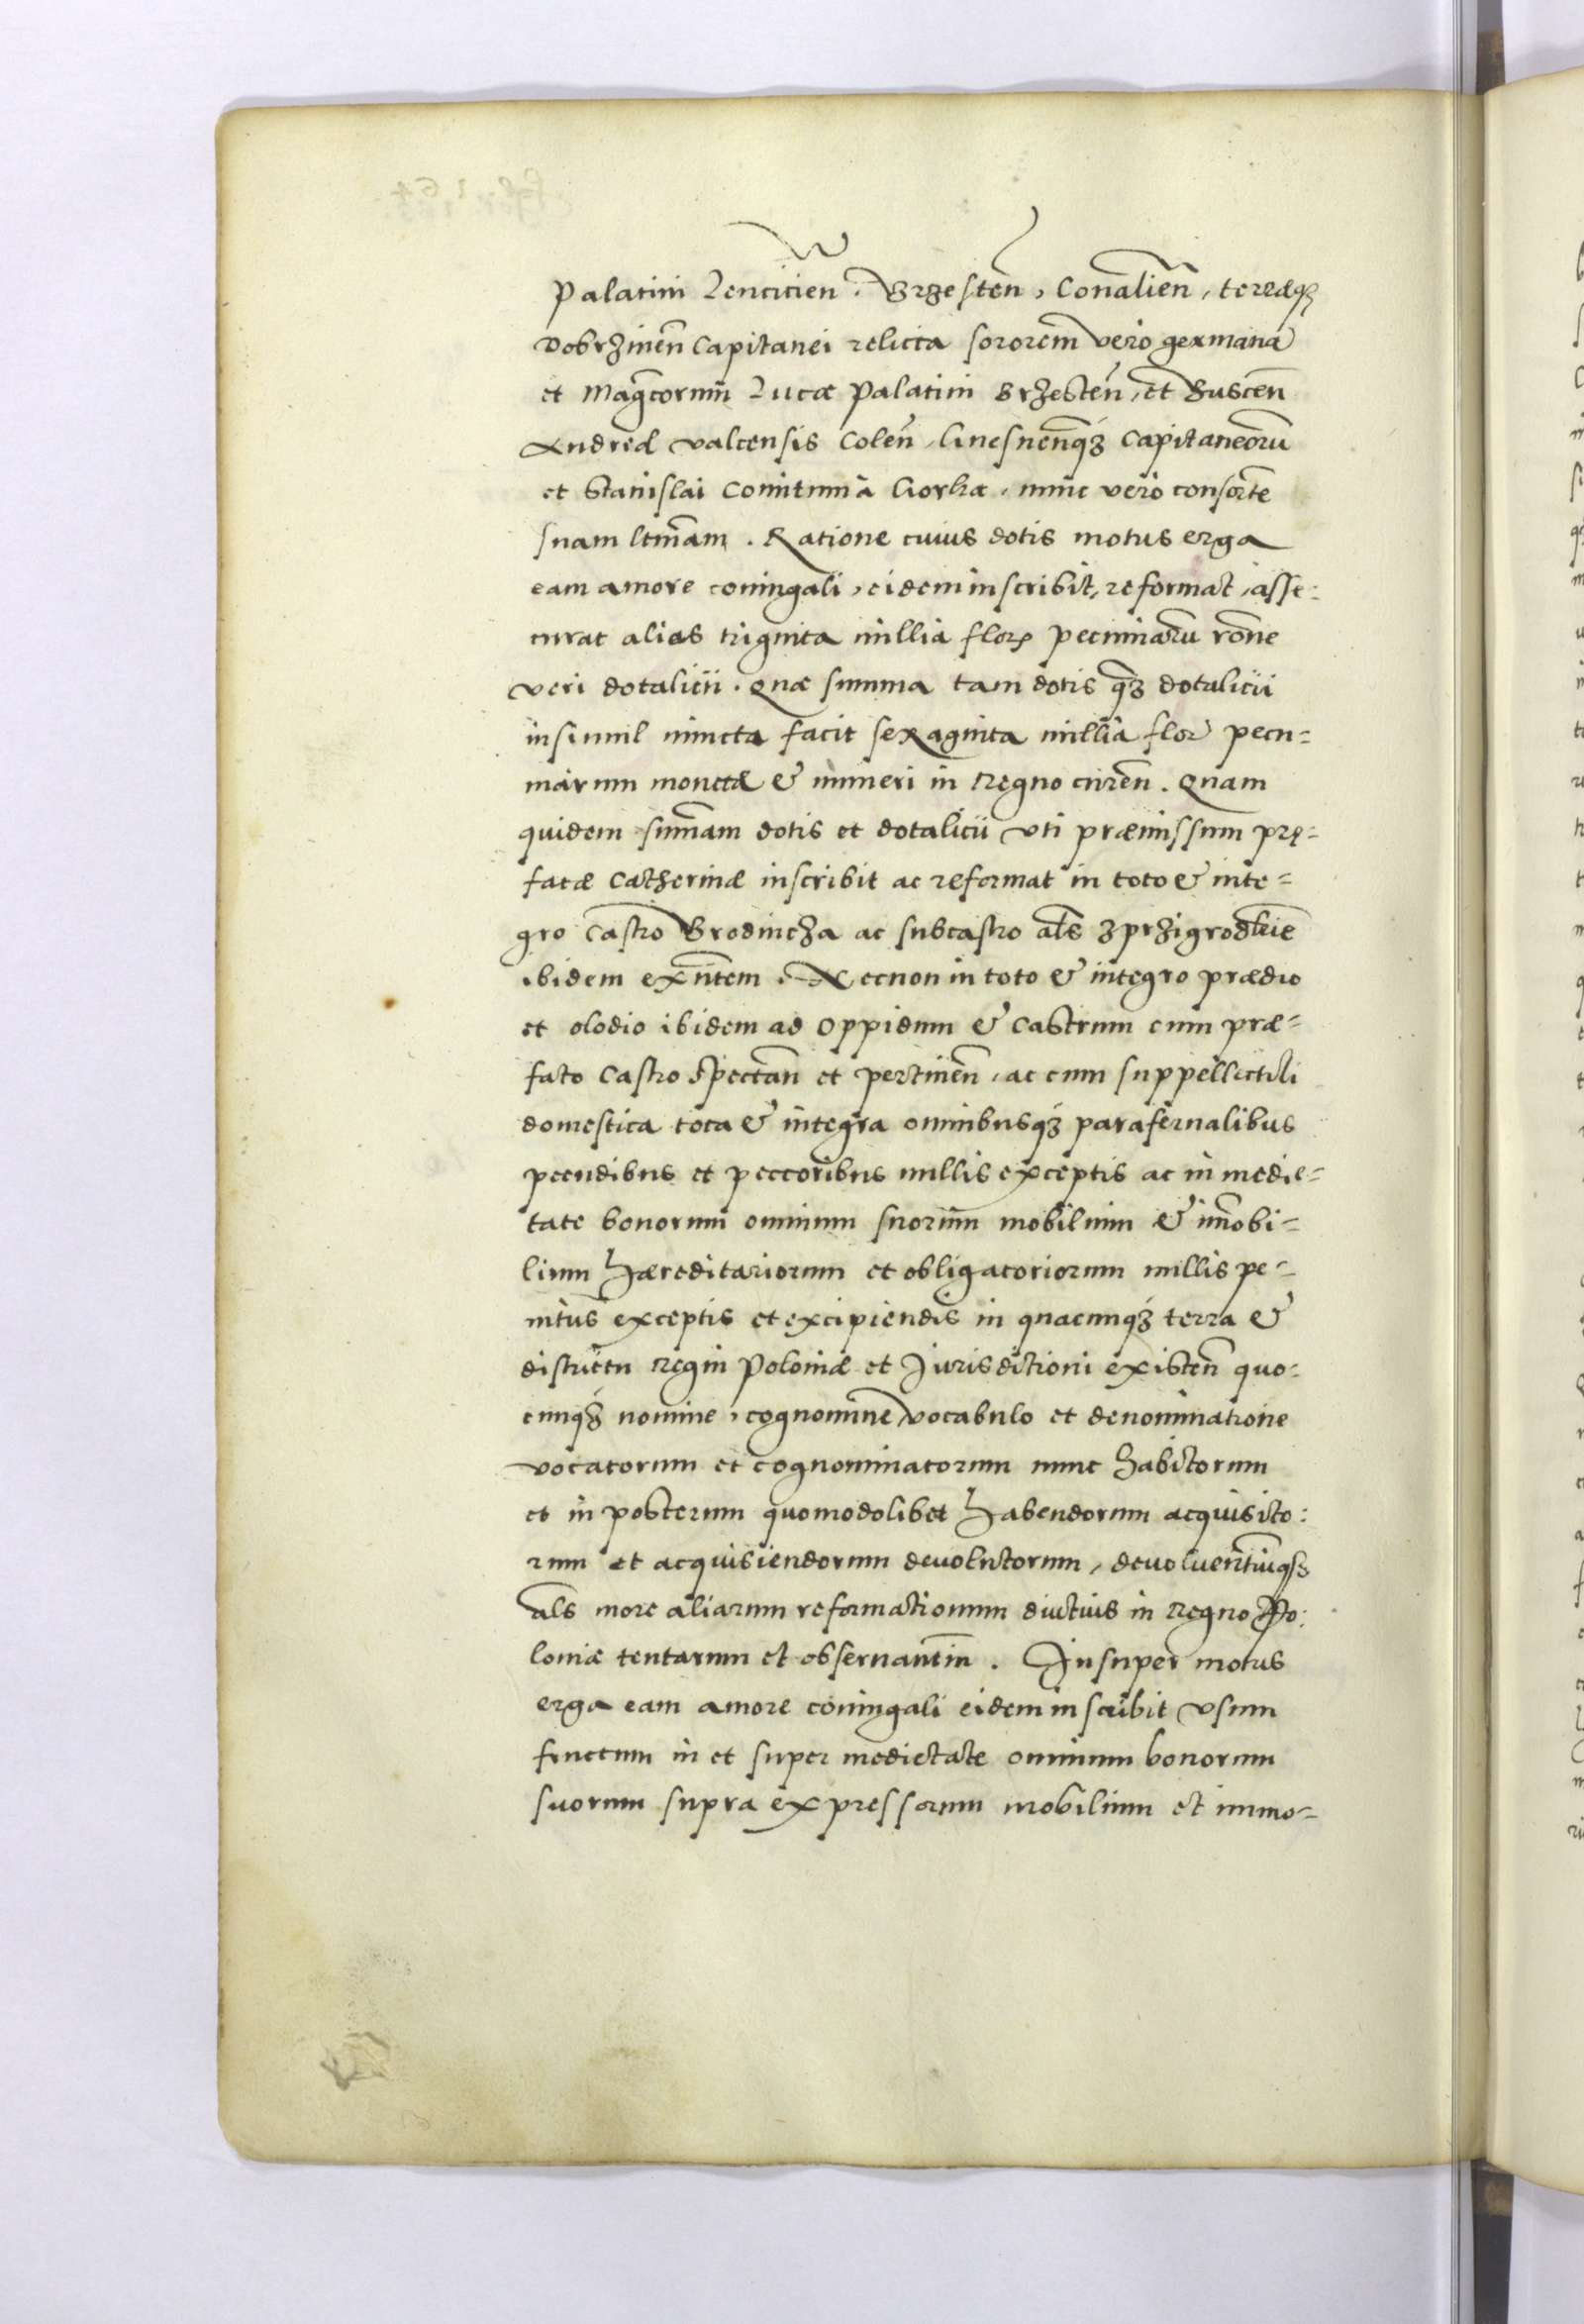 Palatini Lenciciēn. Brzestēn, Conaliēn, terræq3
Dobrzinēn Capitanei relicta sororem̄ vero germanā
et Mag̅corum̄ Lucæ Palatini Brzestēn, et Buscēn
Andreæ valcensis Colēn, Gnesnenq̄3 Capitaneorū
et Stanislai Comitum à Gorka, nunc vero consorte̅
suam ltm̄am. Ratione cuius dotis motus erga
eam amore coniugali, eidem inscribit, reformat, asse:
curat alias triginta millia flor pecuniarū ro̅ne
veri dotalicii. Quæ summa tam dotis q̄3 dotalicii
insimul iuncta facit sexaginta millia flor pecu=
niarum monetæ & numeri in Regno curēn. Quam
quidem sum̄am dotis et dotalicii vti præmissum prę=
fatæ Catherinæ inscribit ac reformat in toto & inte=
gro Castro Brodincza ac subcastro al̄s
ibidem exn̄tem. Necnon in toto & integro prædio
et olodio ibidem ad Oppidum & Castrum cum præ=
fato Castro spectan̄ et pertinēn, ac cum suppellictili
domestica tota & integra omnibusq3 parafernalibus
pecudibus et peccoribus nullis exceptis ac in medie=
tate bonorum omnium suorum̄ mobilium & im̄obi=
lium hæreditariorum et obligatoriorum nullis pe=
nitus exceptis et excipiendis in quacunq3 terra &
districtu Regni Poloniæ et Jurisdictioni existēn quo:
cunq3 nomine, cognomine vocabulo et denominatione
vocatorum et cognominatorum nunc habitorum
et in posterum quomodolibet habendorum acquisito:
rum et acquisiendorum devolutorum, devoluentiūq3
al̄s more aliarum reformationum diuctius in Regno Po:
loniæ tentarum et obseruantiu̅. Insuper motus
erga eam amore coniugali eidem inscribit vsum
fructum in et super medietate omnium bonorum
suorum supra expressorum mobilium et immo=